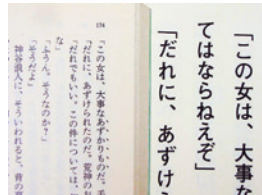 「この女は、大事な
てはならねえぞ」
「だれに、あずけ
154
「この女は、大事なあずかりものだ。手
「だれに、あずけられたのだ。荒神のお
「だれでもいい。この件については、
な」
「ふうん。そうなのか?」
「そうだよ」
神谷浪人に、そういわれると、